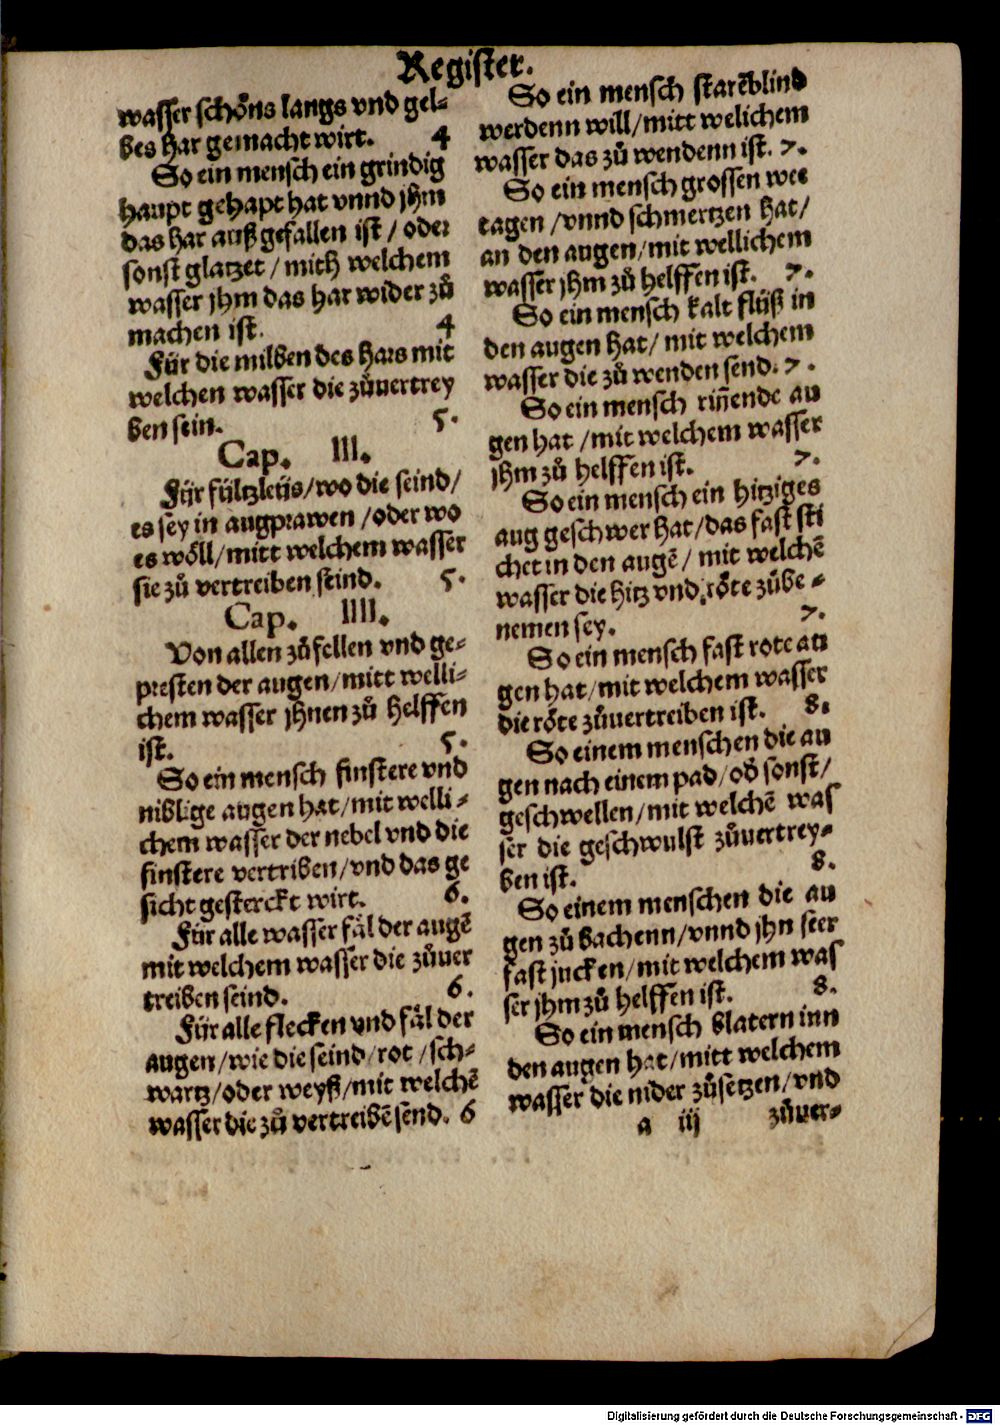 Register.
wasser schöns langs vnd gel-
bes har gemacht wirt. 4
So ein mensch ein grindig
haupt gehapt hat vnnd jhm
das har auß gefallen ist / oder
sonst glatzet / mith welchem
wasser jhm das har wider zů
machen ist. 4
Für die milben des hars mit
welchen wasser die zůuertrey
ben sein. 5.
Cap. III.
Für fültzleüs/wo die seind/
es sey in augprawen /oder wo
es wöll/mitt welchem wasser
sie zů vertreiben seind. 5.
Cap. IIII.
Von allen zůfellen vnd ge-
presten der augen/mitt welli-
chem wasser jhnen zů helffen
ist. 5.
So ein mensch finstere vnd
niblige augen hat/mit welli-
chem wasser der nebel vnd die
finstere vertriben/vnd das ge
sicht gesterckt wirt. 6.
Für alle wasser fäl der augē
mit welchem wasser die zůuer
treiben seind. 6.
Für alle flecken vnd fäl der
augen/wie die seind/rot /sch-
wartz/oder weyß/mit welchē
wasser die zů vertreibē send. 6
So ein mensch starēblind
werdenn will/mitt welichem
wasser das zů wendenn ist. 7.
So ein mensch grossen wee
tagen /vnnd schmertzen hat/
an den augen/mit wellichem
wasser jhm zů helffen ist. 7.
So ein mensch kalt flüß in
den augen hat/ mit welchem
wasser die zů wenden send. 7.
So ein mensch riñende au
gen hat /mit welchem wasser
jhm zů helffen ist. 7.
So ein mensch ein hitziges
aug geschwer hat/das fast sti
chet in den augē/ mit welchē
wasser die hitz vnd röte zůbe-
nemen sey. 7.
So ein mensch fast rote au
gen hat/mit welchem wasser
die röte zůuertreiben ist. 8.
So einem menschen die au
gen nach einem pad/oď sonst/
geschwellen/mit welchē was
ser die geschwulst zůuertrey-
ben ist. 8.
So einem menschen die au
gen zů bachenn/vnnd jhn seer
fast jucken/mit welchem was
ser jhm zů helffen ist. 8.
So ein mensch blatern inn
den augen hat/mitt welchem
wasser die nider zůsetzen/vnd
a iij zůuer-
Digitalisierung gefördert durch die Deutsche Forschungsgemeinschaft - DFG